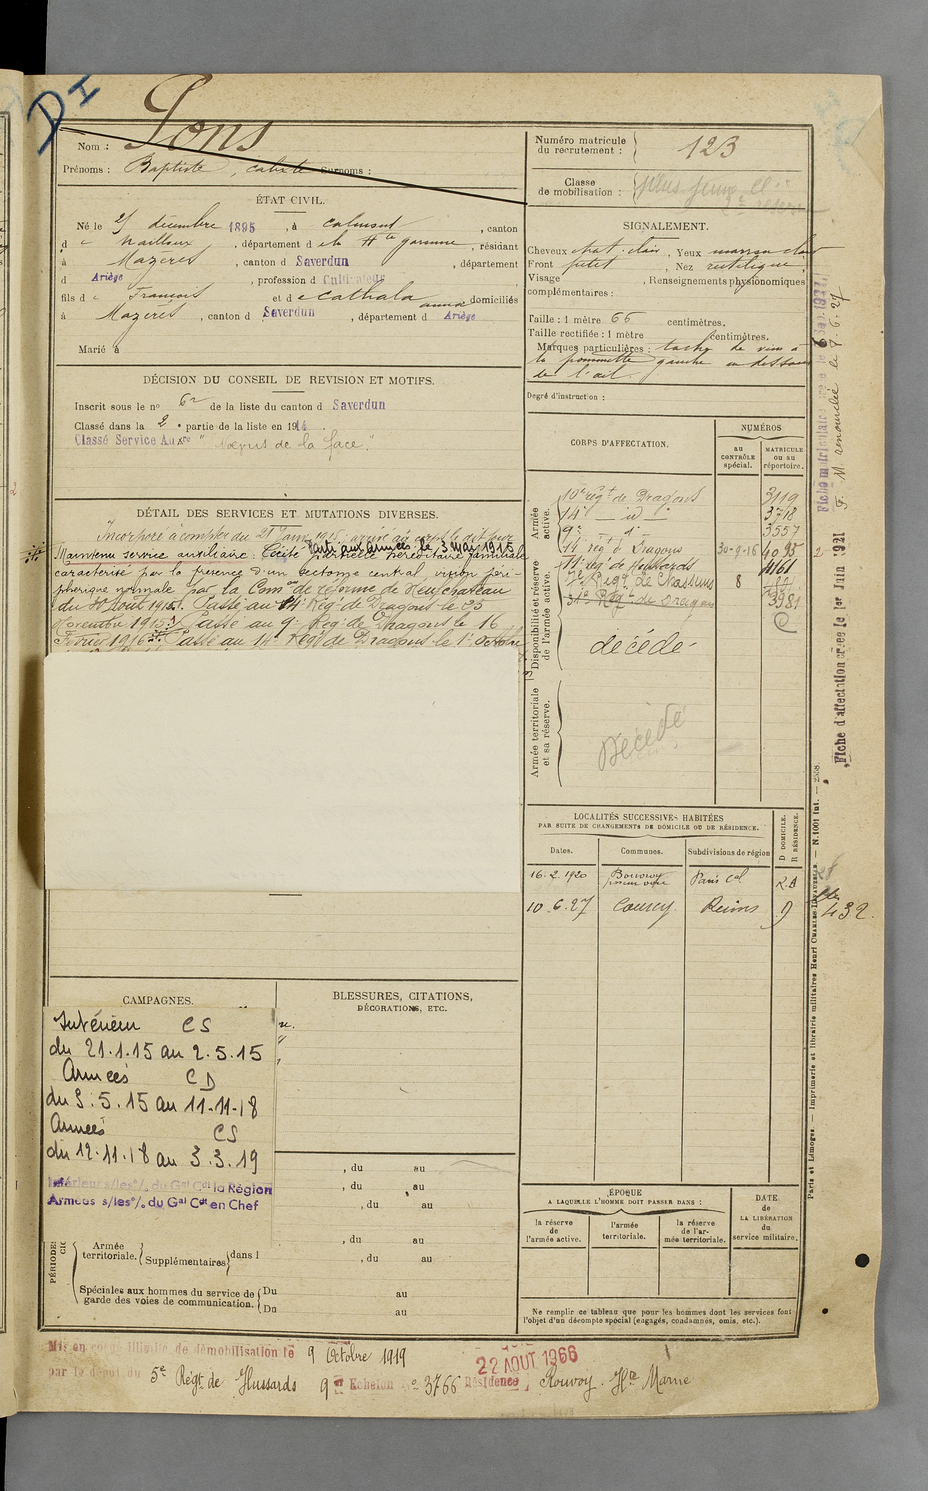 DI
Nom : Pons
Prénoms : Baptiste, Surnoms :
Numéro matricule du recrutement : 123
Classe de mobilisation :
ÉTAT CIVIL.
Né le 25 décembre 1895, à Calmont, canton
d e Nailloux, département d e la Hte Garonne, résidant
à Mazères, canton d Saverdun, département
d Ariège, profession d Cultivateur
fils d e François et d e Cathala Anna domiciliés
à Mazères, canton d Saverdun, département d Ariège
Marié à
SIGNALEMENT.
Cheveux chat. clair, Yeux marron clair
Front petit, Nez rectiligne,
Visage , Renseignements physionomiques
complémentaires :
Taille : 1 mètre 66 centimètres.
Taille rectifiée : 1 mètre centimètres.
Marques particulières : tache de vin à
la pommette gauche en dessous
de l'œil.
Degré d'instruction :
DÉCISION DU CONSEIL DE REVISION ET MOTIFS.
Inscrit sous le no de la liste du canton d Saverdun
Classé dans la 2e partie de la liste en 1914
Classé Service Auxre "Nœvus de la face".
DÉTAIL DES SERVICES ET MUTATIONS DIVERSES.
Incorporé à compter du 21 Janv 1915, arrivé au corps le dit jour
Parti aux armées le 3 Mai 1915
Maintenu service auxiliaire: Cécité partielle héréditaire familiale
caractérisé par la présence d'un scotome central, vision péri-
phérique normale par la Comon de réforme de Neufchateau
du 30 Aout 1915. Passé au 14e Rég. de Dragons le 25
Novembre 1915. Passé au 9e Rég. de Dragons le 16
Février 1916. Passé au 14e Régt de Dragons le 1er Octobre
CORPS D'AFFECTATION.
NUMÉROS
au CONTRÔLE spécial.
MATRICULE ou au répertoire.
Armée active.
10e régt de Dragons 3119
14e id 3718
9e d° 3557
14 régt d Dragons 30-9-16 4095
Disponibilité et réserve de l'armée active.
régt de Hussards
Regt de Chasseurs 8
31e Régt de Dragons 3981
décédé
Armée territoriale et sa réserve.
Décédé
LOCALITÉS SUCCESSIVES HABITÉES
PAR SUITE DE CHANGEMENTS DE DOMICILE OU DE RÉSIDENCE.
Dates. Communes. Subdivisions de région D DOMICILE. R RÉSIDENCE.
16.2.1920 Paris Cal
10.6.27 Courcy Reims D
432.
Fiche d'affectation créée le 1er Juin 1921
F. M. renouvelée le 7.6.27
Paris et Limoges. — Imprimerie et librairie militaires Henri CHARLES-LAVAUZELLE. — N. 1001 int. — 2558.
CAMPAGNES.
Intérieur CS
du 21.1.15 au 2.5.15
Armées CD
du 3.5.15 au 11-11-18
Armées CS
du 12.11.18 au 3.3.19
Intérieur s/les o/. du Gal Cdt la Région
Armées s/les o/. du Gal Cdt en Chef
BLESSURES, CITATIONS,
DÉCORATIONS, ETC.
, du au
, du au
, du au
, du au
, du au
Armée territoriale. Supplémentaires dans l
Spéciales aux hommes du service de garde des voies de communication. Du au
Du au
ÉPOQUE
A LAQUELLE L'HOMME DOIT PASSER DANS :
la réserve de l'armée active.
l'armée territoriale.
la réserve de l'armée territoriale.
DATE de LA LIBÉRATION du service militaire.
Ne remplir ce tableau que pour les hommes dont les services font
l'objet d'un décompte spécial (engagés, condamnés, omis, etc.).
Mis en congé illimité de démobilisation le 9 Octobre 1919
22 AOUT 1966
par le dépôt du 5e Régt de Hussards 9e Echelon no 3766 Résidence, Rouvoy. Hte Marne